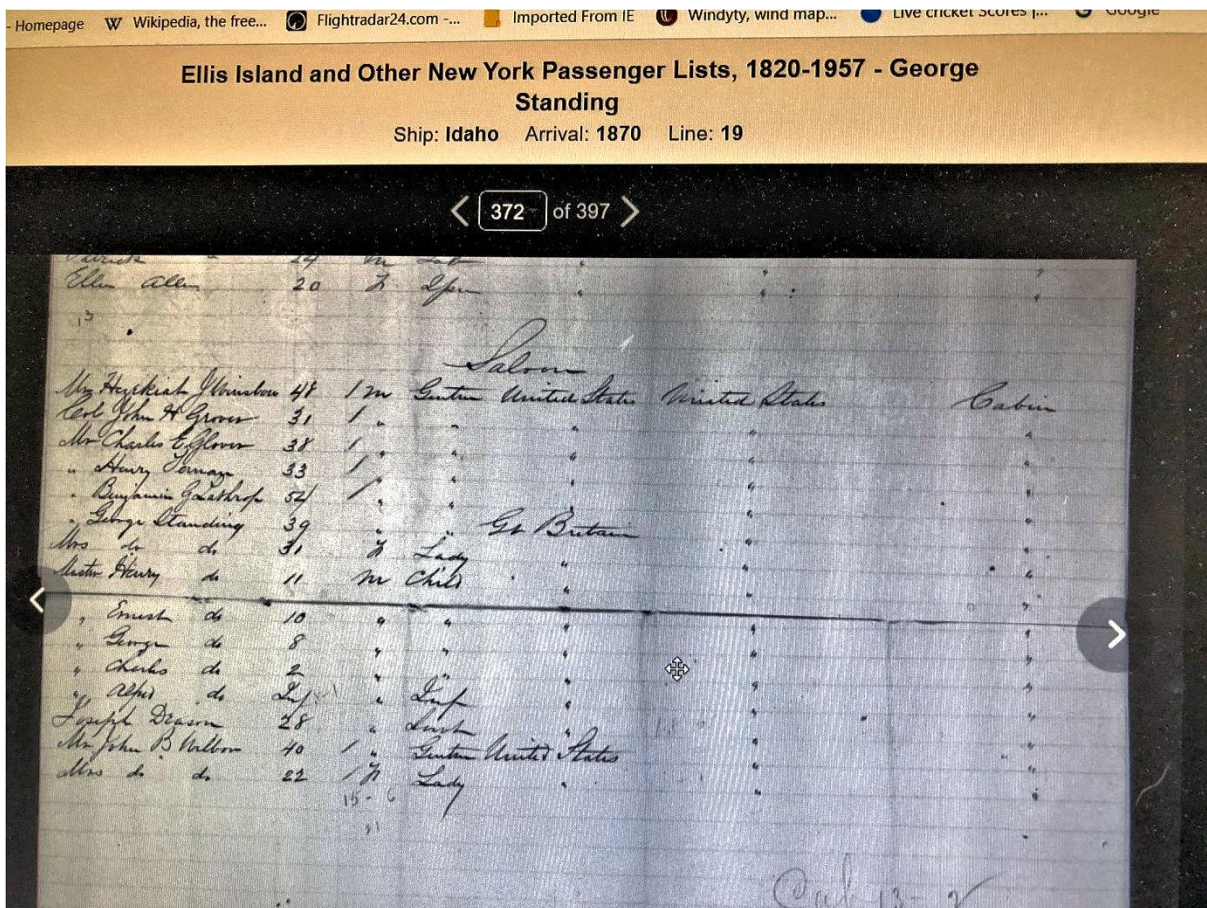 - Homepage W Wikipedia, the free... Flightradar24.com -... Imported From IE Windyty, wind map... Live cricket Scores |... Google
Ellis Island and Other New York Passenger Lists, 1820-1957 - George
Standing
Ship: Idaho Arrival: 1870 Line: 19
372 of 397
24 m
Ellen Allen 20 f "
13
Saloon
Mr J 48 / m United States United States Cabin
Col John H Grover 31 / " " " " "
Mr Charles E Glover 38 / " " " " "
" Henry 33 / " " " " "
" Benjamin G Lathrop 54 / " " " " "
" George Standing 39 " " Gt Britain " "
Mrs do do 31 f Lady " " "
Henry do 11 m Child " " "
" Ernest do 10 " " " " "
" George do 8 " " " " "
" Charles do 2 " " " " "
" do Inf " Inf " " "
Joseph 28 " " " "
Mr John B 40 / " United States " "
Mrs do do 22 / f Lady " " "
15 - 6
Cab 13 - 2